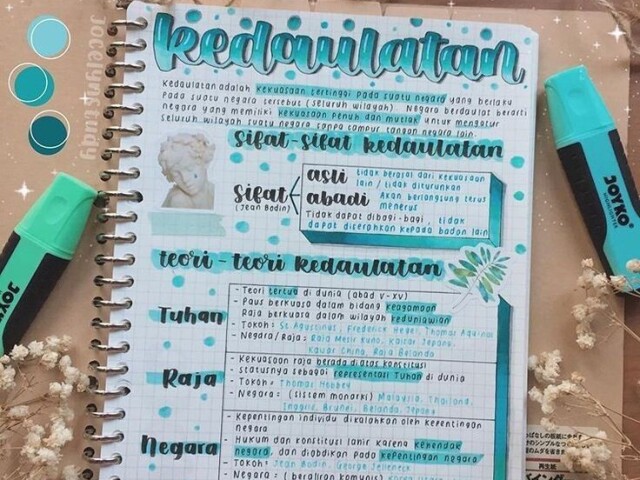 Jocelynstudy
kedaulatan
Kedaulatan adalah kekuasaan tertinggi pada suatu negara yang berlaku
pada suatu negara tersebut (seluruh wilayah). Negara berdaulat berarti
negara yang memiliki kekuasaan penuh dan mutlak untuk mengatur
seluruh wilayah suatu negara tanpa campur tangan negara lain.
sifat-sifat kedaulatan
Sifat
(Jean Bodin)
asli tidak berasal dari kekuasaan
lain / tidak diturunkan
abadi Akan berlangsung terus
menerus
Tidak dapat dibagi-bagi, tidak
dapat diserahkan kepada badan lain
teori-teori kedaulatan
Tuhan
- Teori tertua di dunia (abad V-XV)
- Paus berkuasa dalam bidang keagamaan
Raja berkuasa dalam wilayah keduniawian
- Tokoh: St Agustinus, Frederick Hegel, Thomas Aquinas
- Negara/Raja: Raja Mesir Kuno, Kaisar Jepang,
Kaisar China, Raja Belanda
Raja
- Kekuasaan raja berada diatas konstitusi
- Statusnya sebagai representasi Tuhan di dunia
- Tokoh: Thomas Hobbes
- Negara: (sistem monarki) Malaysia, Thailand,
Inggris, Brunei, Belanda, Jepang
Negara
- Kepentingan individu dikalahkan oleh kepentingan
negara
- Hukum dan konstitusi lahir karena kehendak
negara, dan diabdikan pada kepentingan negara
- Tokoh: Jean Bodin, George Jelleneck
- Negara: (beraliran komunis)
JOYKO
JOYKO